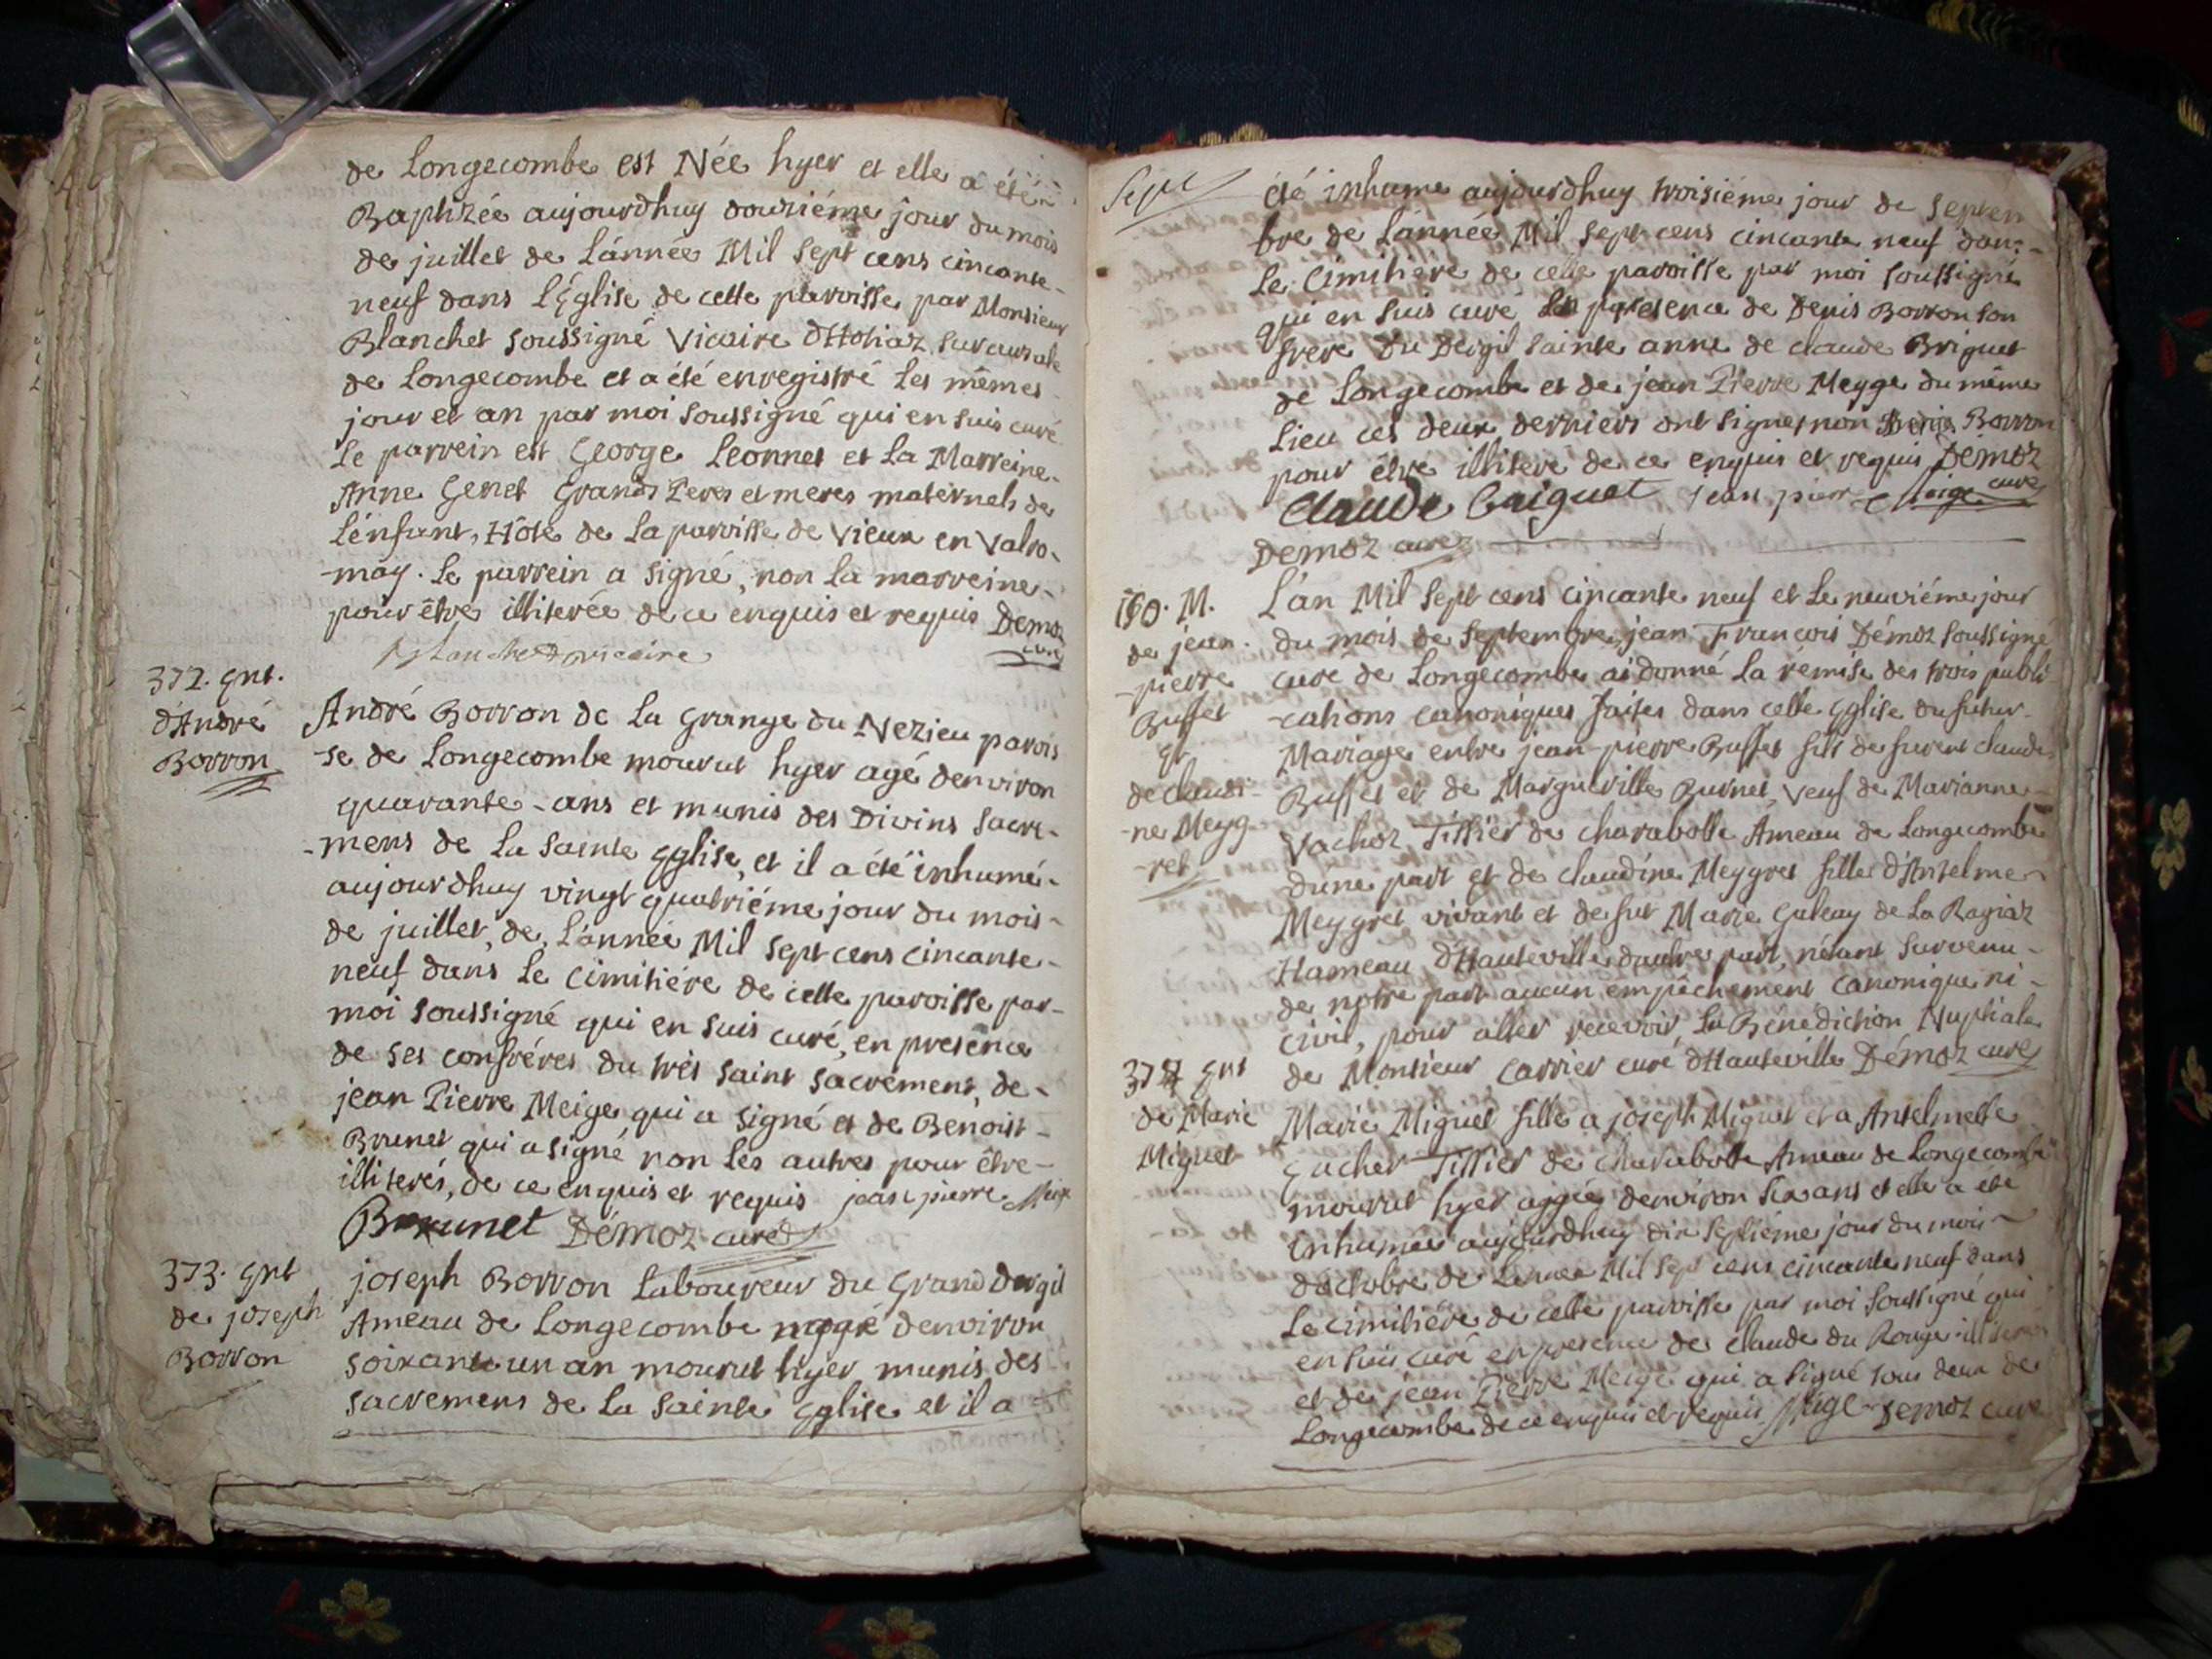 de Longecombe est Née hyer et elle a été
Baptizée aujourdhuy douziéme jour du mois
de juillet de Lánnée Mil sept cens cincante-
neuf dans L'Église de cette paroisse par Monsieur
Blanchet soussigné Vicaire d'Hotiaz succursale
de Longecombe et a été enregistré Les mêmes
jour et an par moi soussigné qui en suis curé
Le parrein est George Leonnet et La Marreine-
Anne Genet Grands Peres et meres maternels de
Lénfant, Hôte de La paroisse de Vieux en Valro-
-mey. Le parrein a signé, non La marreine-
pour être illiterée de ce enquis et requis Demoz
Blanchet vicaire curé
372. Ent.
d'André
Borron
André Borron de La Grange du Nezieu parois
-se de Longecombe mourut hyer agé denviron
quarante-ans et munis des Divins Sacre-
-mens de La Sainte Eglise, et il a été inhumé-
aujourdhuy vingt quatriéme jour du mois-
de juillet, de Lánnée Mil sept cens cincante-
neuf dans Le Cimitiére de cette paroisse par-
moi soussigné qui en suis curé, en presence
de ses confréres du très saint sacrement, de-
jean Pierre Meige qui a signé et de Benoist-
Brunet qui a signé non Les autres pour être-
illiterés, de ce enquis et requis jean pierre Meige
Brunet Démoz curé
373. Ent
de joseph
Borron
joseph Borron Laboureur du Grand Dergil
Ameau de Longecombe aggé denviron
soixante un an mourut hyer munis des
sacremens de La Sainte Eglise et il a
Sept
été inhumé aujourdhuy troisiéme jour de septem
bre de Lánnée Mil sept cens cincante neuf dans
Le Cimitiére de cette paroisse par moi soussigné
qui en suis curé En presence de Denis Borron son
frere du Dergil sainte anne de claude Briguet
de Longecombe et de jean Pierre Meyge du même
Lieu ces deux derniers ont signe, non Denis Borron
pour être illitere de ce enquis et requis Démoz
Claude Briguet jean pierre Meige curé
Démoz curé
160. M.
de jean-
-pierre
Buffet
Et
de claudi-
-ne Meyg-
-ret
Lán Mil Sept cens Cincante neuf et Le neuviéme jour
du mois de Septembre, jean Francois Démoz soussigné
curé de Longecombe ai donné La remise des trois publi
-cations canoniques faites dans cette Eglise du futur-
Mariage entre jean-pierre Buffet fils de furent claude
Buffet et de Marguerite Burnet, veuf de Marianne-
Vachoz Tissier de Charabotte Ameau de Longecombe
dune part et de claudine Meygret fille d'Antelme
Meygret vivant et de fut Marie Guleay de La Ragiaz
Hameau d'Hauteville dautre part, n'etant survenu-
de notre part aucun empêchement Canonique ni-
Civil, pour aller recevoir La Bénediction Nuptiale
de Monsieur Carrier curé d'Hauteville Démoz curé
374 Ent
de Marie
Miguet
Marie Miguet fille a joseph Miguet et a Antelmette
Gacher Tissier de Charabotte Ameau de Longecombe
mourut hyer aggée denviron six ans et elle a été
inhumée aujourdhuy dix septiéme jour du mois
d'octobre de Lannee Mil Sept cens cincante neuf dans
Le cimitiére de cette paroisse par moi soussigné qui
en suis curé en presence de claude du Rouge illiteré
et de jean Pierre Meige qui a signé tous deux de
Longecombe de ce enquis et requis Meige Demoz curé